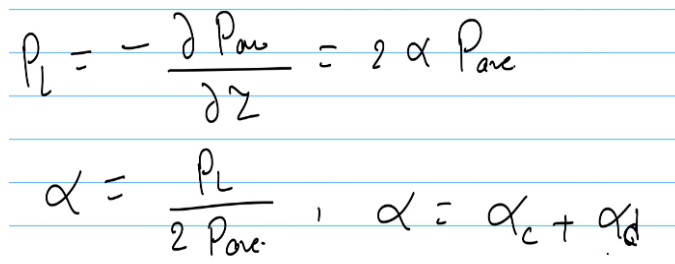 P_L = - ∂ P_ave / ∂ Z = 2 α P_ave
α = P_L / 2 P_ave , α = α_c + α_d